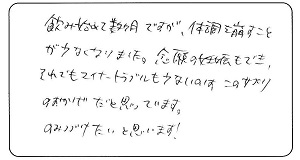 飲み始めて数か月ですが、体調を崩すこと
が少なくなりました。念願の妊娠もでき、
それでもマイナートラブルも少ないのは、この
のおかげだと思っています。
のみつづけたいと思います!